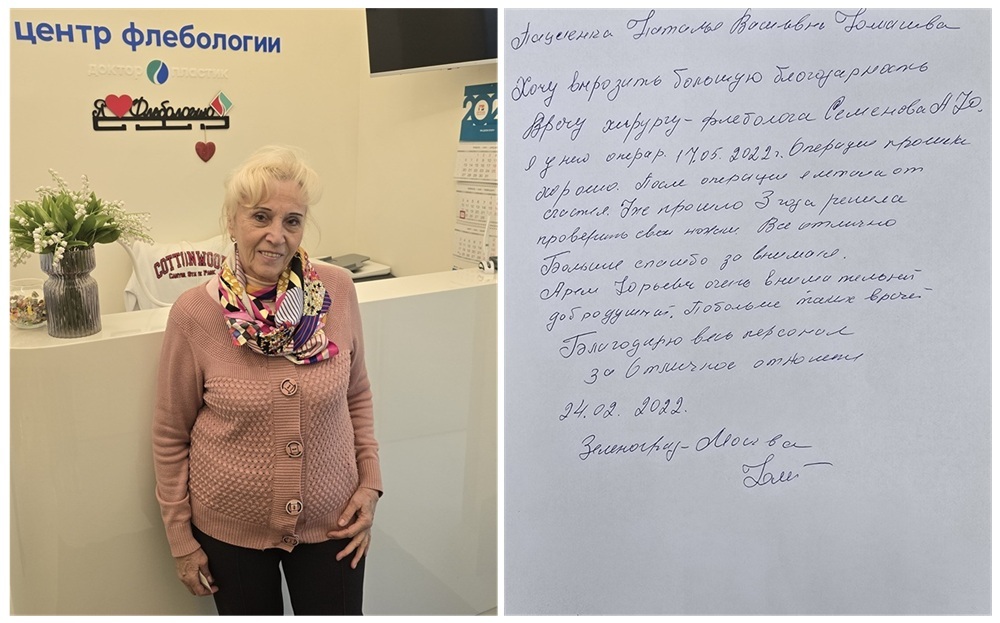 центр флебологии
доктор пластик
Я Флебологию
202
COTTONWOOD
Пациенка Наталье Васильвнь Томашева
Хочу вырозить большую благодарность
Врачу хирургу-флеболога Семенова А Ю.
я у него опрар. 17.05. 2022 г. Операция прошла
хорошо. После операции я летала от
счастья. Уже прошло 3 года решила
проверить свои ножки. Все отлично
Большие спасибо за внимания.
Арем Юрьевич очень внимательней
добродушний. Побольше таких врачей
Благодарю весь персонал
за Отличное отношения
24.02. 2022.
Зеленоград-Москва